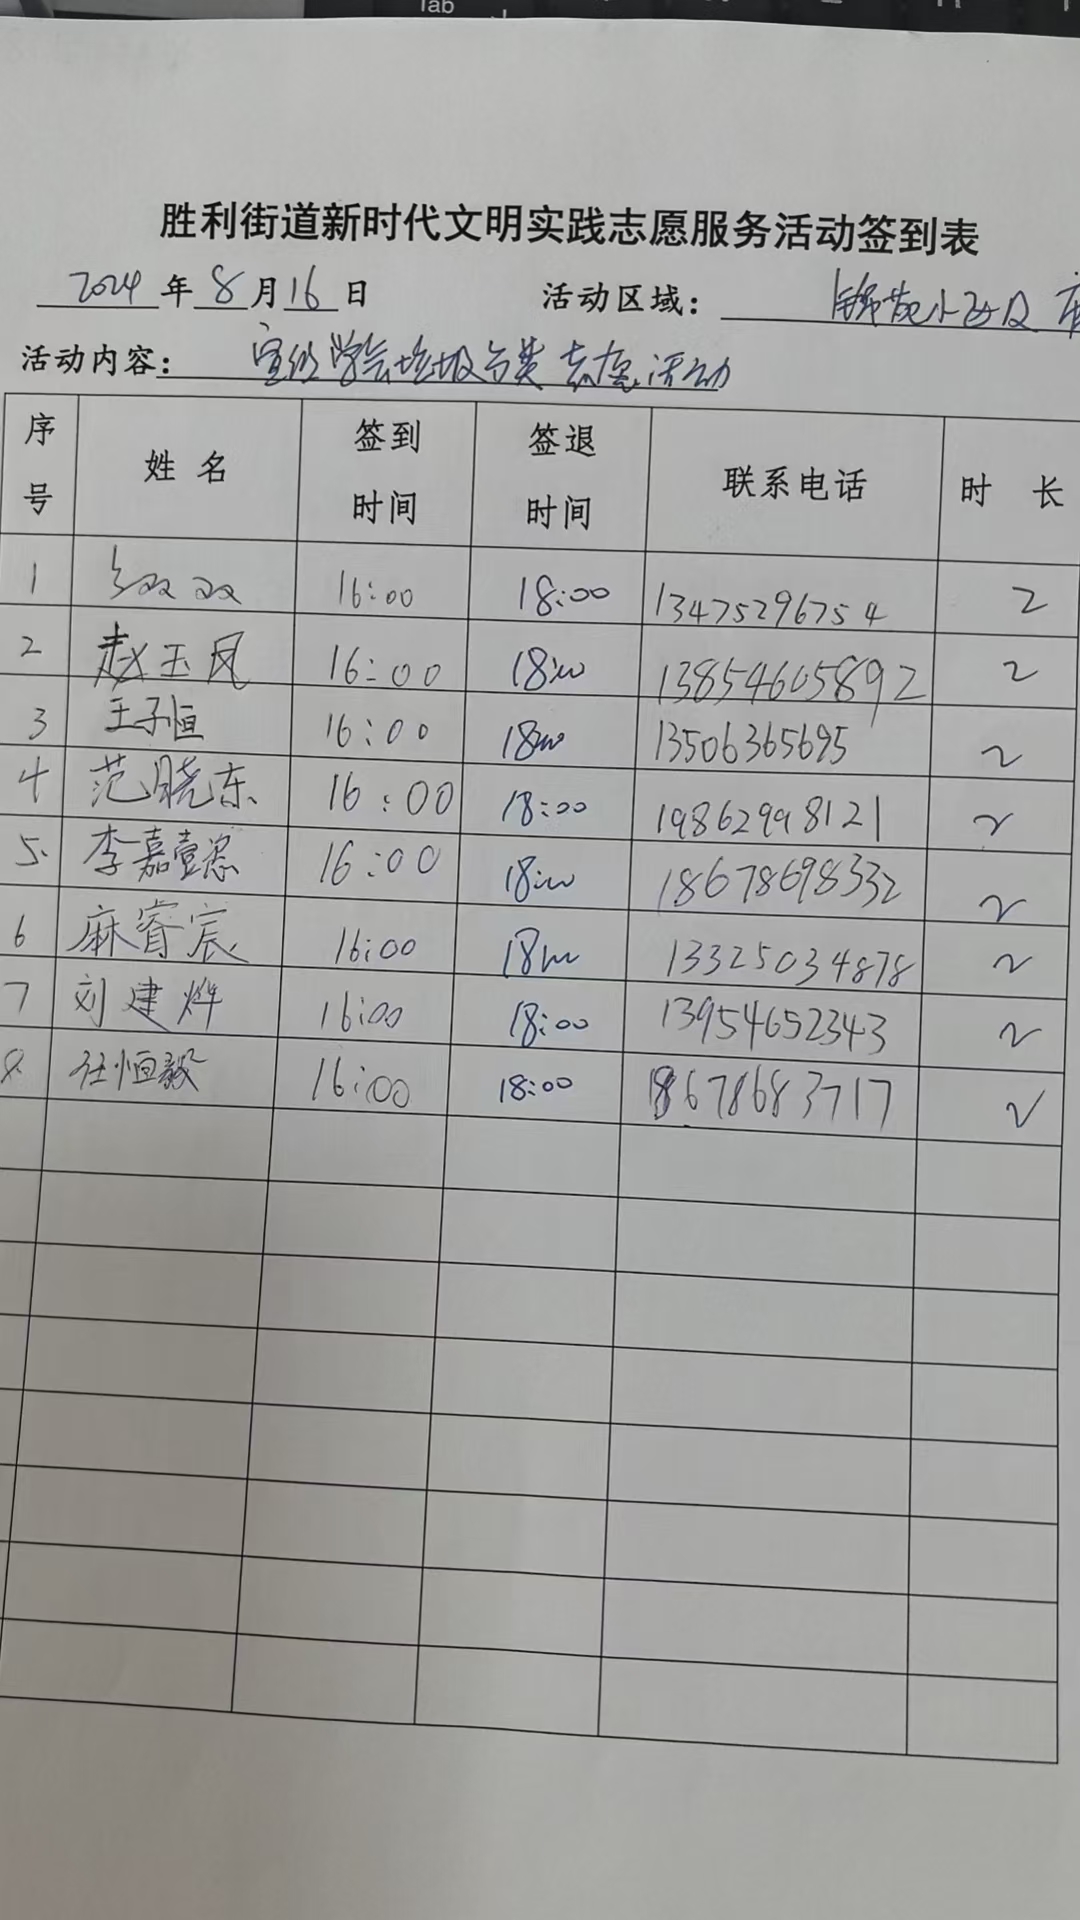 Tab
胜利街道新时代文明实践志愿服务活动签到表
2024年8月16日 活动区域：锦苑小区
活动内容：宣传学会垃圾分类志愿活动
序号 姓名 签到时间 签退时间 联系电话 时长
1 双双 16:00 18:00 13475296754 2
2 赵玉凤 16:00 18:00 13854605892 2
3 王子恒 16:00 18:00 13506365695 2
4 范晓东 16:00 18:00 19862998121 2
5. 李嘉懿 16:00 18:00 18678698332 2
6 麻睿宸 16:00 18:00 13325034878 2
7 刘建烨 16:00 18:00 13954652343 2
8 任恒毅 16:00 18:00 18678683717 2